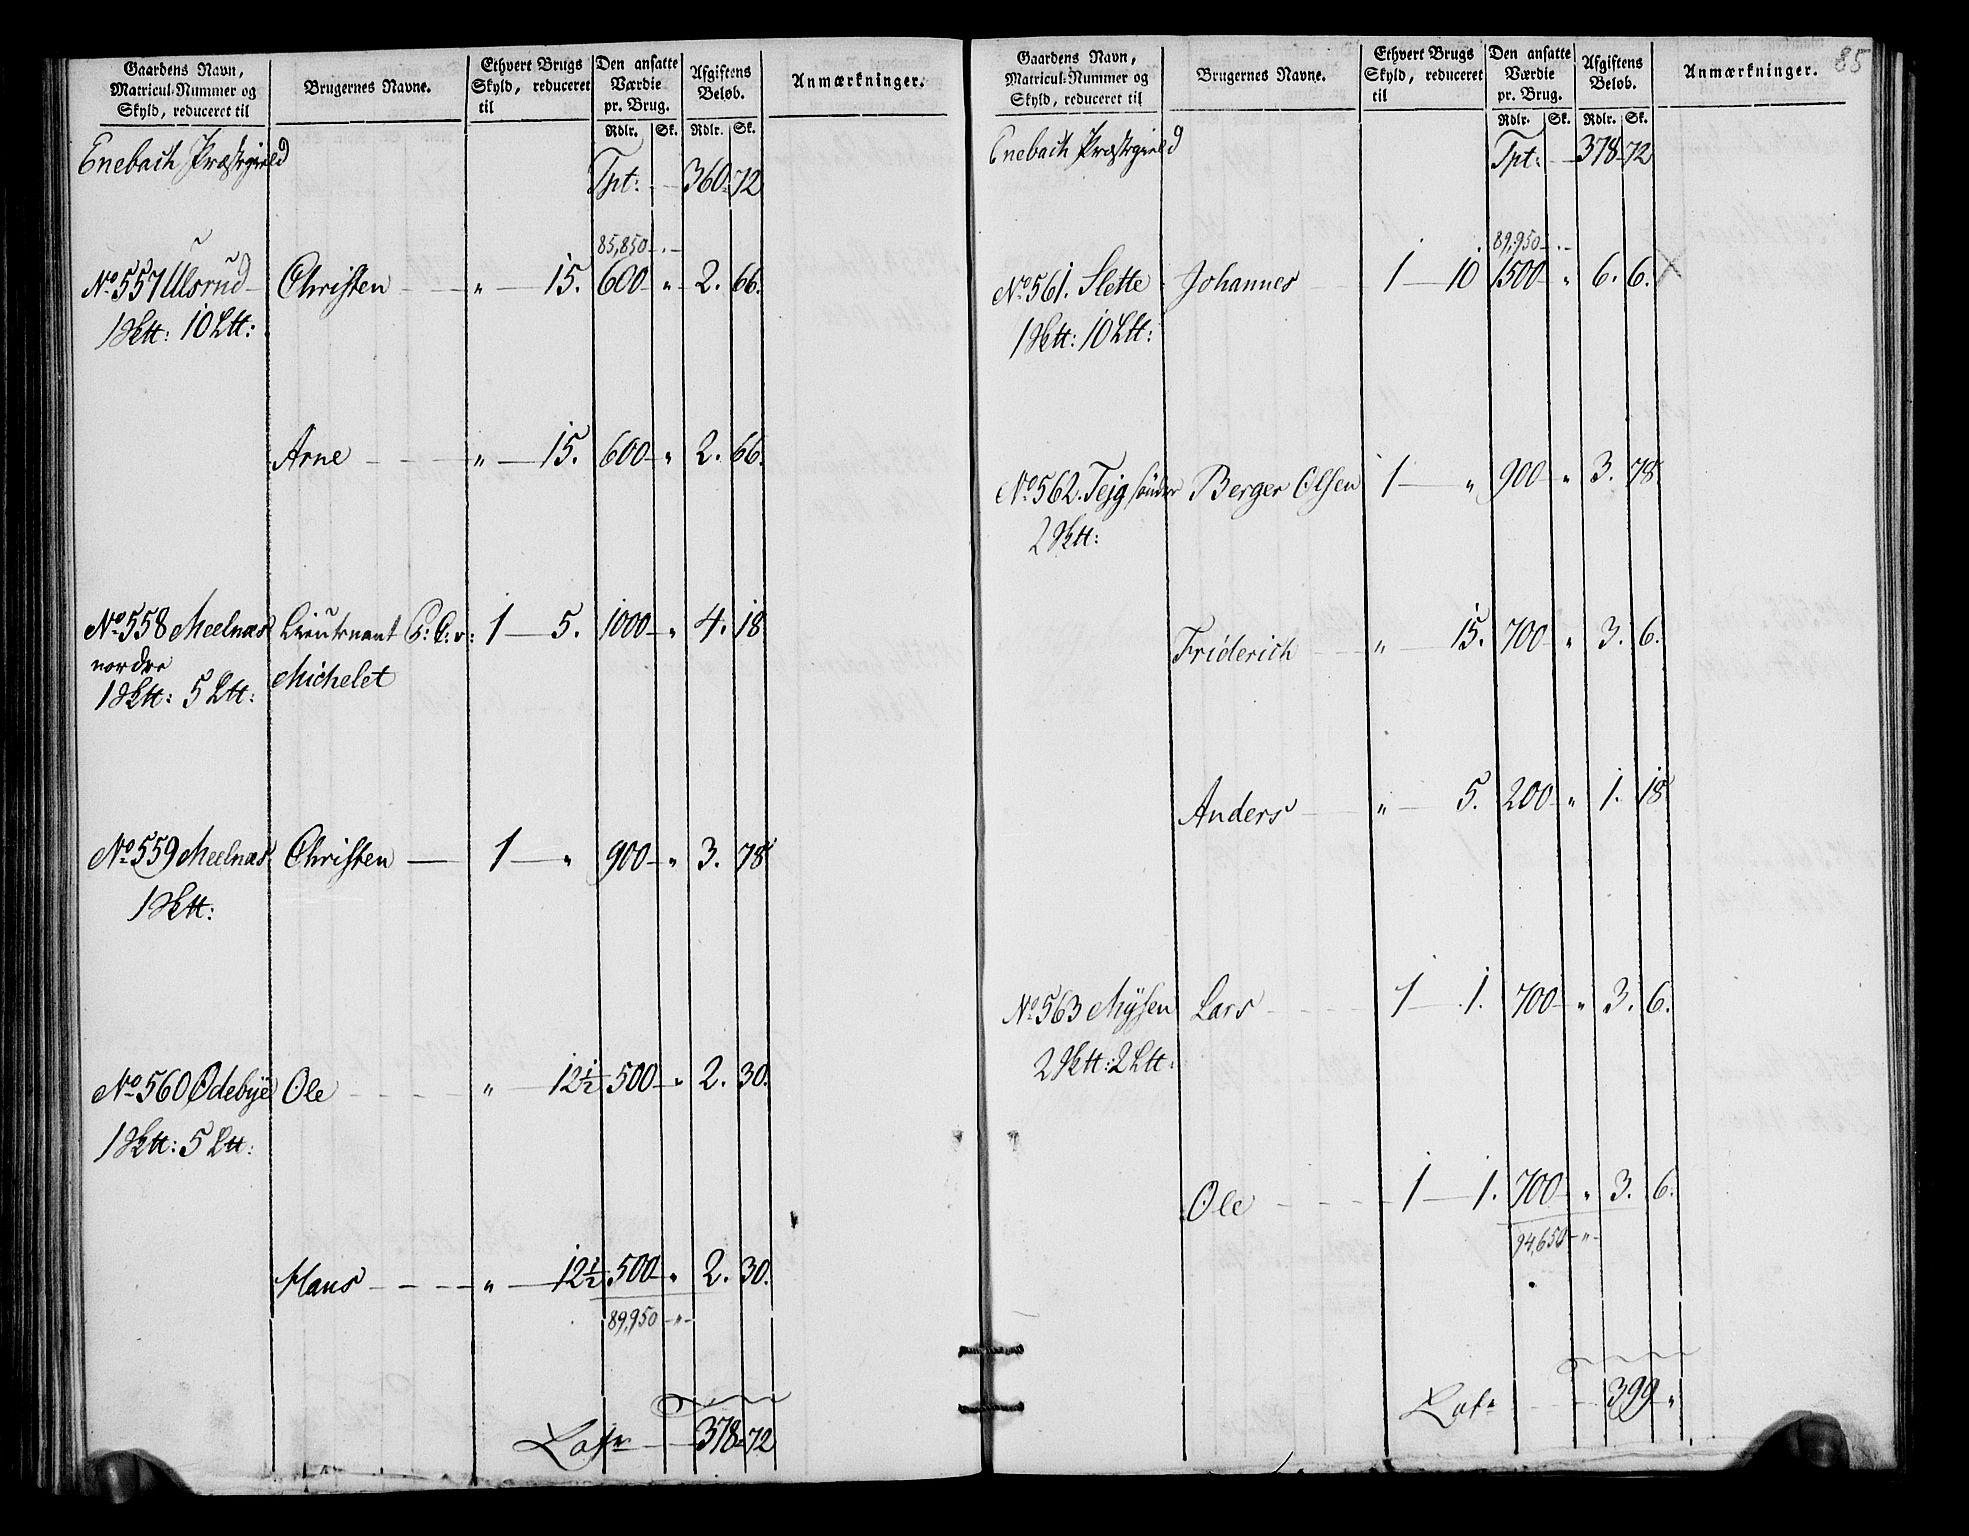 Gaardens Navn,
Matricul-Nummer og
Skyld, reduceret til
Brugernes Navne.
Ethvert Brugs
Skyld, reduceret
til
Den ansatte
Værdie
pr. Brug.
Afgiftens
Beløb.
Anmærkninger.
Rdlr. Sk. Rdlr. Sk.
Enebach Præstegield
Tpt: 360 72
85,850
No 557 Ulsrud Christen " 15. 600 " 2. 66.
1 Sktt: 10 Ltt:
Arne " 15. 600 " 2. 66.
No 558 Meelnæs Lieutenant 1 5. 1000 " 4. 18
nordre Michelet
1 Sktt: 5 Ltt:
No 559 Meelnæs Christen 1 " 900 " 3. 78
1 Sktt:
No 560 Ødebye Ole " 12½ 500 " 2. 30.
1 Sktt: 5 Ltt:
Hans " 12½ 500 " 2. 30.
89,950 "
Lats 378 72
85
Gaardens Navn,
Matricul-Nummer og
Skyld, reduceret til
Brugernes Navne.
Ethvert Brugs
Skyld, reduceret
til
Den ansatte
Værdie
pr. Brug.
Afgiftens
Beløb.
Anmærkninger.
Rdlr. Sk. Rdlr. Sk.
Enebach Præstegield
Tpt: 378 72
89,950
No 561. Slette Johannes 1 10 1500 " 6. 6. X
1 Sktt: 10 Ltt:
No 562. Tejg sönder Berger Olsen 1 " 900 " 3. 78
2 Sktt:
Friderich " 15. 700 " 3. 6.
Anders " 5. 200 " 1. 18
No 563 Mÿsen Lars 1 1. 700 " 3. 6.
2 Sktt: 2 Ltt:
Ole 1 1. 700 " 3. 6.
94,650 "
Lats 399 "